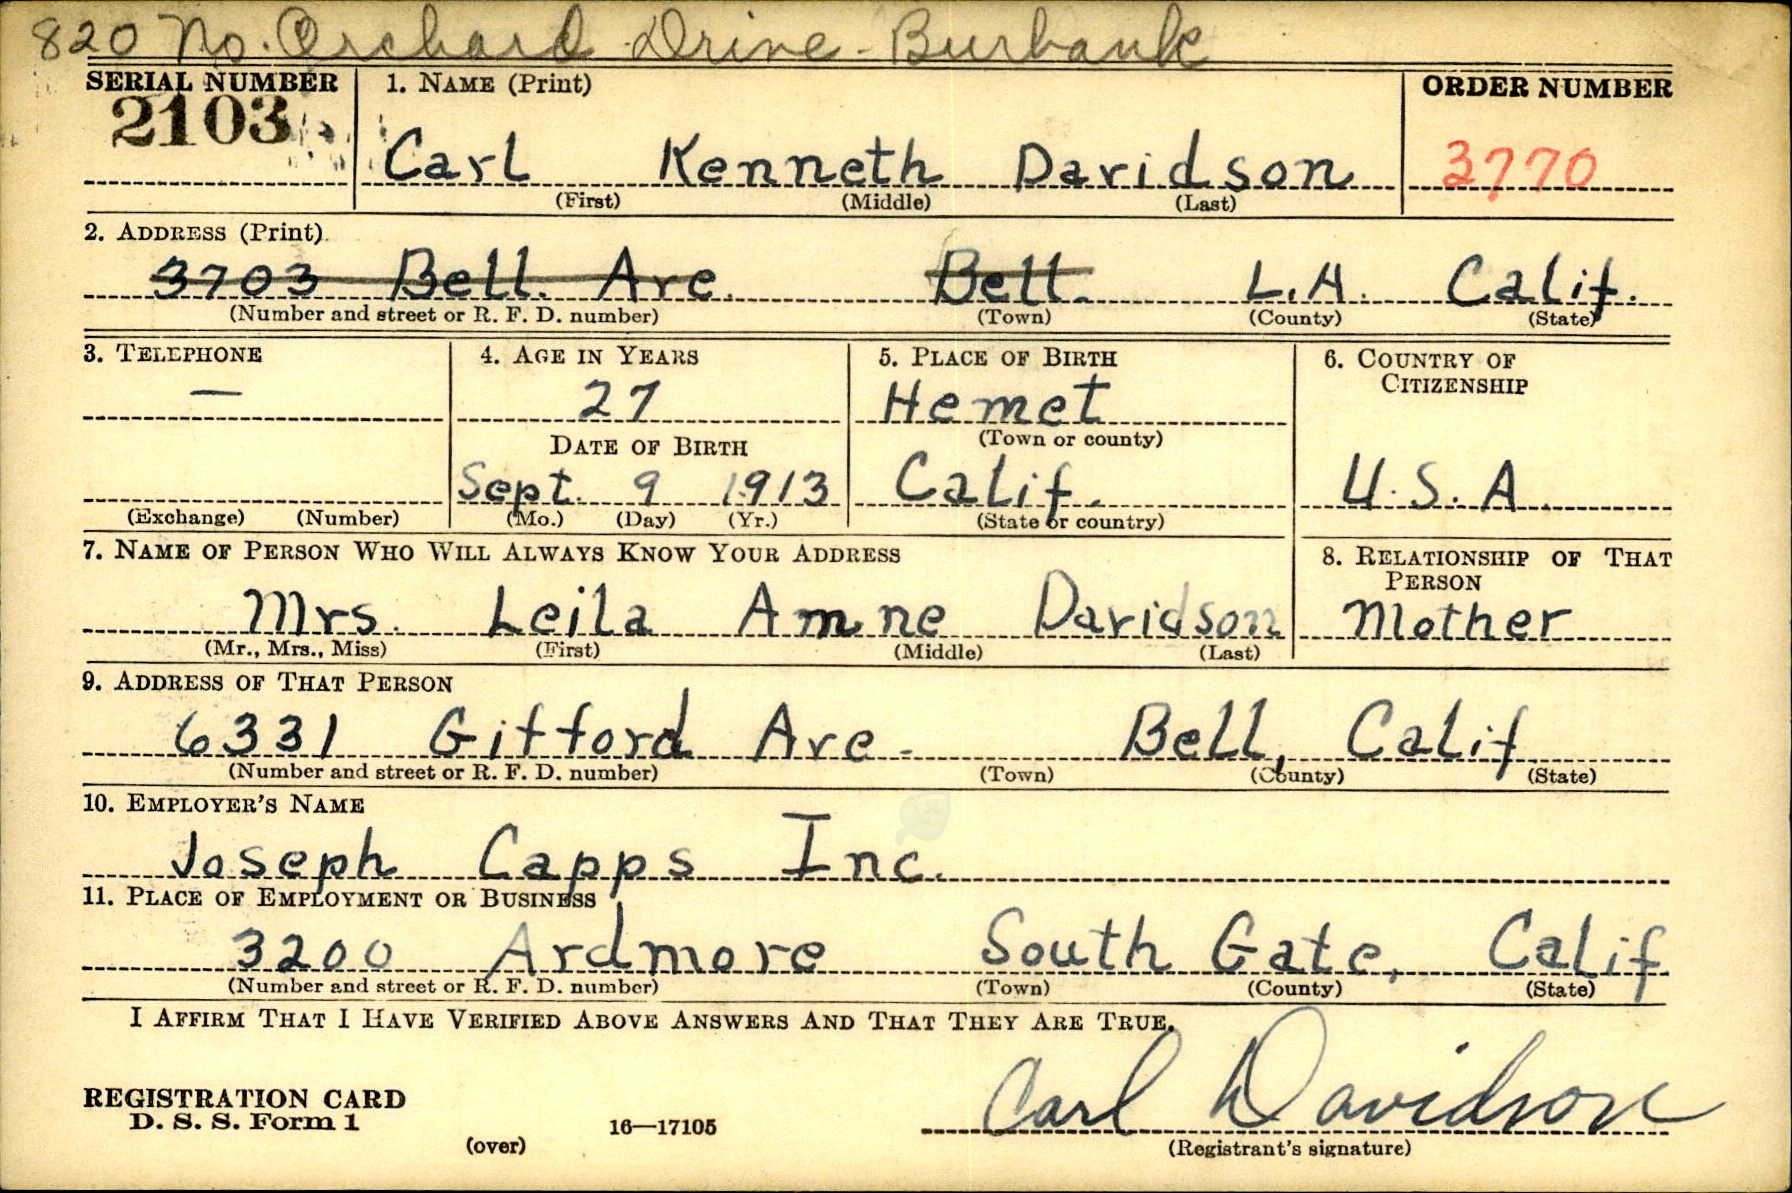 820 No. Orchard Drive - Burbank
SERIAL NUMBER 1. NAME (Print) ORDER NUMBER
2103 Carl Kenneth Davidson 3770
(First) (Middle) (Last)
2. ADDRESS (Print)
3703 Bell. Ave. Bell. L.A. Calif.
(Number and street or R. F. D. number) (Town) (County) (State)
3. TELEPHONE 4. AGE IN YEARS 5. PLACE OF BIRTH 6. COUNTRY OF CITIZENSHIP
— 27 Hemet
DATE OF BIRTH (Town or county)
Sept. 9 1913 Calif. U.S.A.
(Exchange) (Number) (Mo.) (Day) (Yr.) (State or country)
7. NAME OF PERSON WHO WILL ALWAYS KNOW YOUR ADDRESS 8. RELATIONSHIP OF THAT PERSON
Mrs. Leila Amne Davidson Mother
(Mr., Mrs., Miss) (First) (Middle) (Last)
9. ADDRESS OF THAT PERSON
6331 Gifford Ave. Bell, Calif
(Number and street or R. F. D. number) (Town) (County) (State)
10. EMPLOYER'S NAME
Joseph Capps Inc.
11. PLACE OF EMPLOYMENT OR BUSINESS
3200 Ardmore South Gate, Calif.
(Number and street or R. F. D. number) (Town) (County) (State)
I AFFIRM THAT I HAVE VERIFIED ABOVE ANSWERS AND THAT THEY ARE TRUE.
Carl Davidson
REGISTRATION CARD
D. S. S. Form 1
(over) 16—17105 (Registrant's signature)